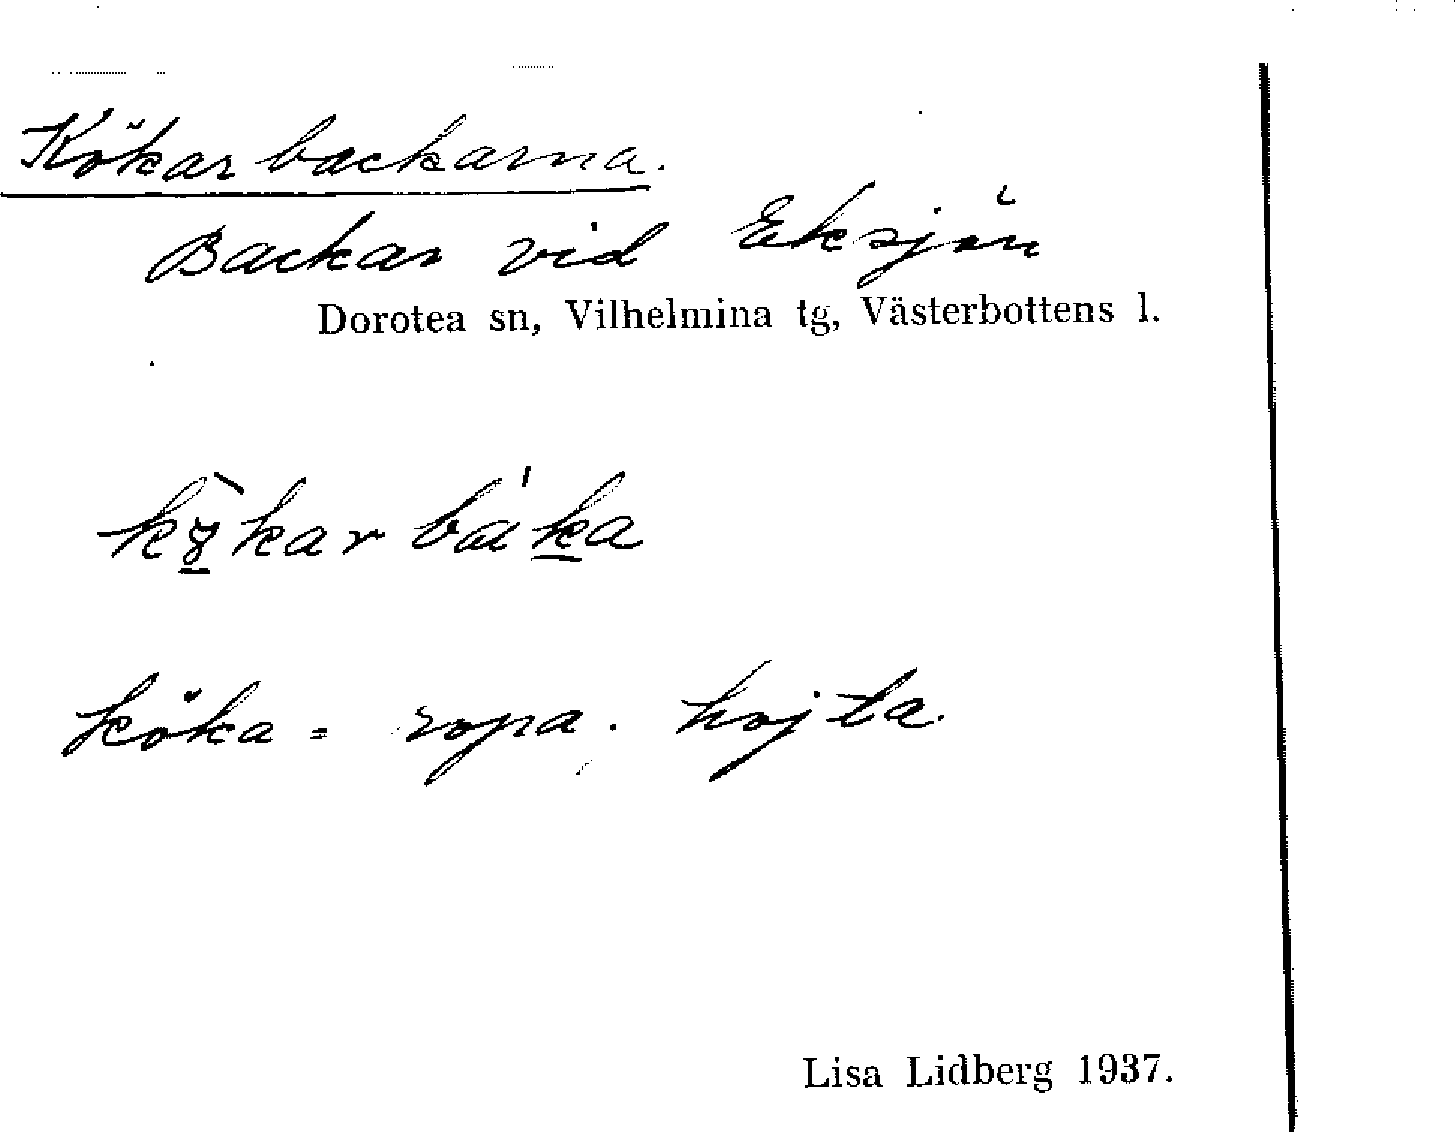 Kökarbackarna.
Backar vid Eksjön
Dorotea sn, Vilhelmina tg, Västerbottens l.
kö̀karbáka
köka = ropa. hojta.
Lisa Lidberg 1937.